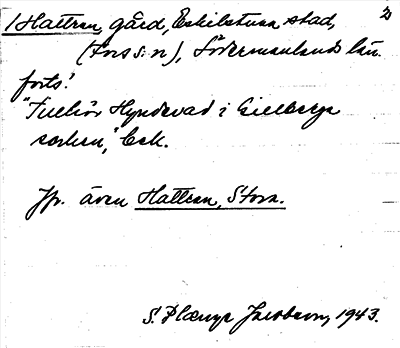 1 Hattran, gård, Eskilstuna stad, 2
(Fors s:n), Södermanlands län.
forts!
"Tillhör Hyndevad i Gillberga
socken," Besk.
Jfr. även Hattran, Stora.
S. Plænge Jacobson, 1943.